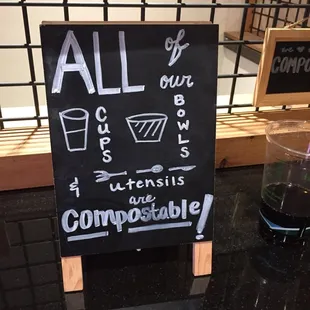 ALL of
our
CUPS
BOWLS
& utensils
are
compostable!
we
COMPO